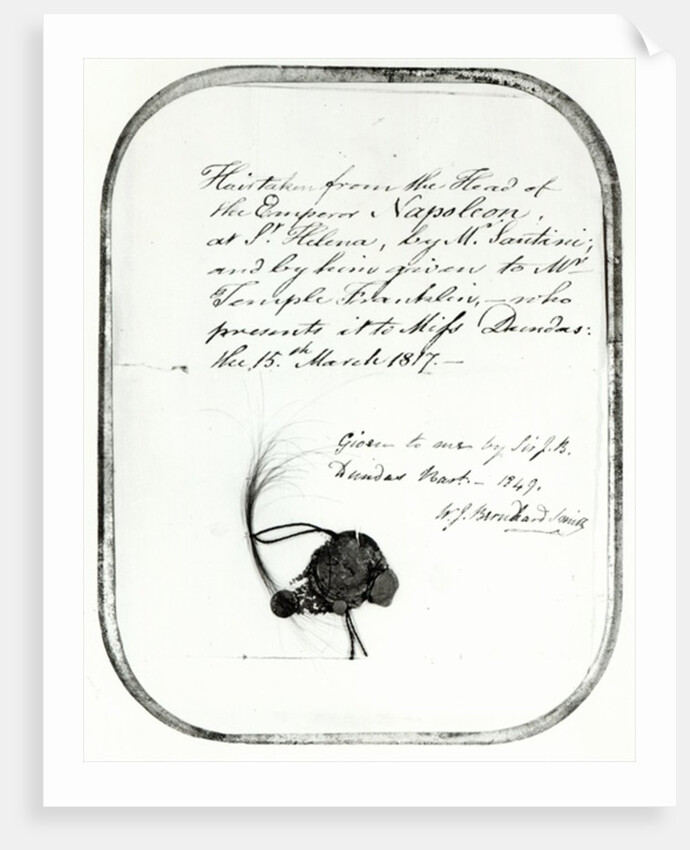 Hair taken from the Head of
the Emperor Napoleon,
at St. Helena, by M. Santini;
and by him given to Mr
Temple Franklin, — who
presents it to Miss Dundas:
the 15.th March 1817. —
Given to me by Sir J. B.
Dundas Bart. — 1849.
W. J. Bernhard Smith